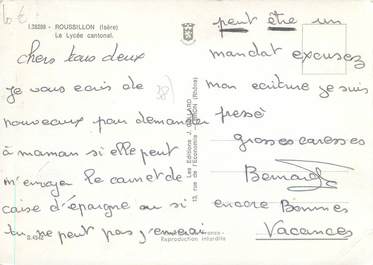 10 €
1.38299 - ROUSSILLON (Isère)
Le Lycée cantonal.
chers tous deux
je vous ecris de
nouveaux pour demander
à maman si elle peut
m'envoyer le carnet de
caise d'épargne ou si
tu ne peut pas j'enverai
peut être un
mandat excusez
mon ecriture je suis
pressé
grosses caresses
Bernard
encore Bonnes
Vacances
Les Editions J.
13, rue de l'Economie
(Rhône)
France
Reproduction interdite